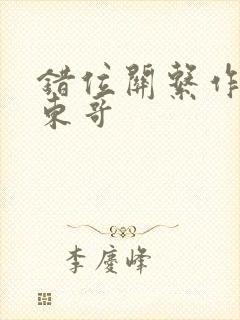 錯位關系作
東哥
李慶峰